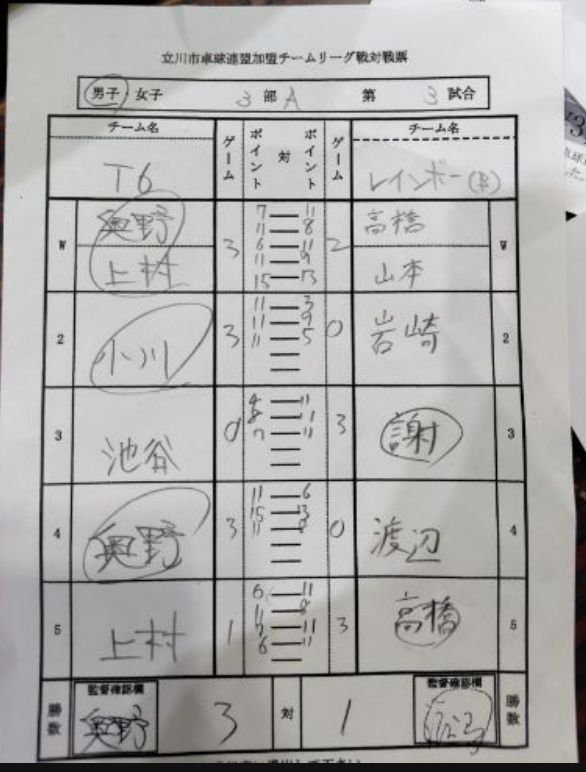 立川市卓球連盟加盟チームリーグ戦対戦票
男子・女子 3部A 第 3 試合
チーム名 ゲーム ポイント 対 ポイント ゲーム チーム名
T6 レインボー(B)
W 奥野 上村 3 2 高橋 山本 W
7 — 11
11 — 8
6 — 11
11 — 9
15 — 13
2 小川 3 0 岩崎 2
11 — 3
11 — 9
11 — 5
3 池谷 0 3 謝 3
4 — 11
8 — 11
7 — 11
4 奥野 3 0 渡辺 4
11 — 6
15 — 13
11 —
5 上村 1 3 高橋 5
6 — 11
11 — 8
— 11
6 — 11
勝数 監督確認欄 奥野 3 対 1 監督確認欄 勝数